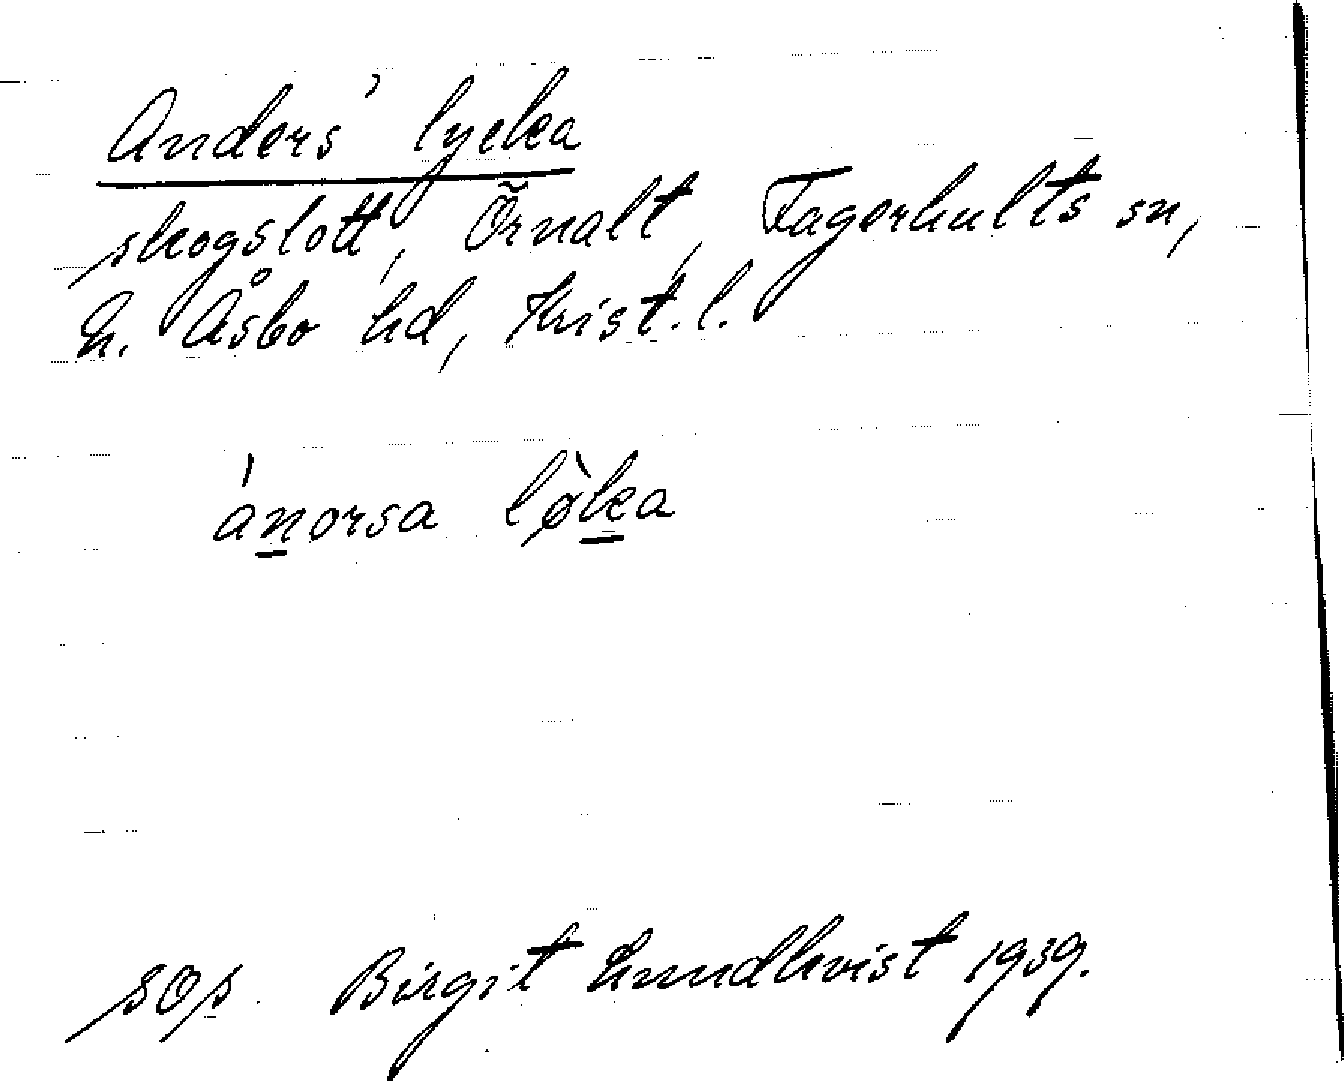 Anders' lycka
skogslott, Örnalt, Fagerhults sn,
N. Åsbo hd, Krist. l.
ánorsa lø̀ka
sop. Birgit Lundkvist 1939.